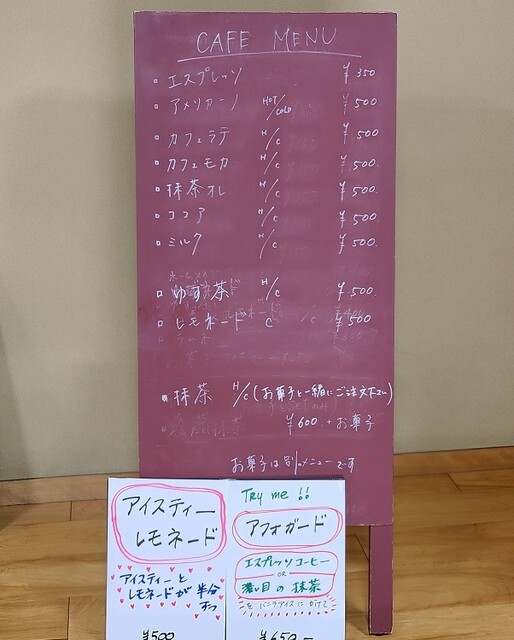 CAFE MENU
エスプレッソ ¥350
アメリカーノ HOT/COLD ¥500
カフェラテ H/C ¥500
カフェモカ H/C ¥500
抹茶オレ H/C ¥500
ココア H/C ¥500
ミルク H/C ¥500.
ゆず茶 H/C ¥500.
レモネード C ¥500
抹茶 H/C (お菓子と一緒にご注文下さい)
¥600 + お菓子
お菓子は別メニューです
アイスティー
レモネード
アイスティーと
レモネードが 半分
ずつ
¥500
Try me !!
アフォガード
エスプレッソコーヒー
OR
濃い目の抹茶
をバニラアイスにかけて
¥650-